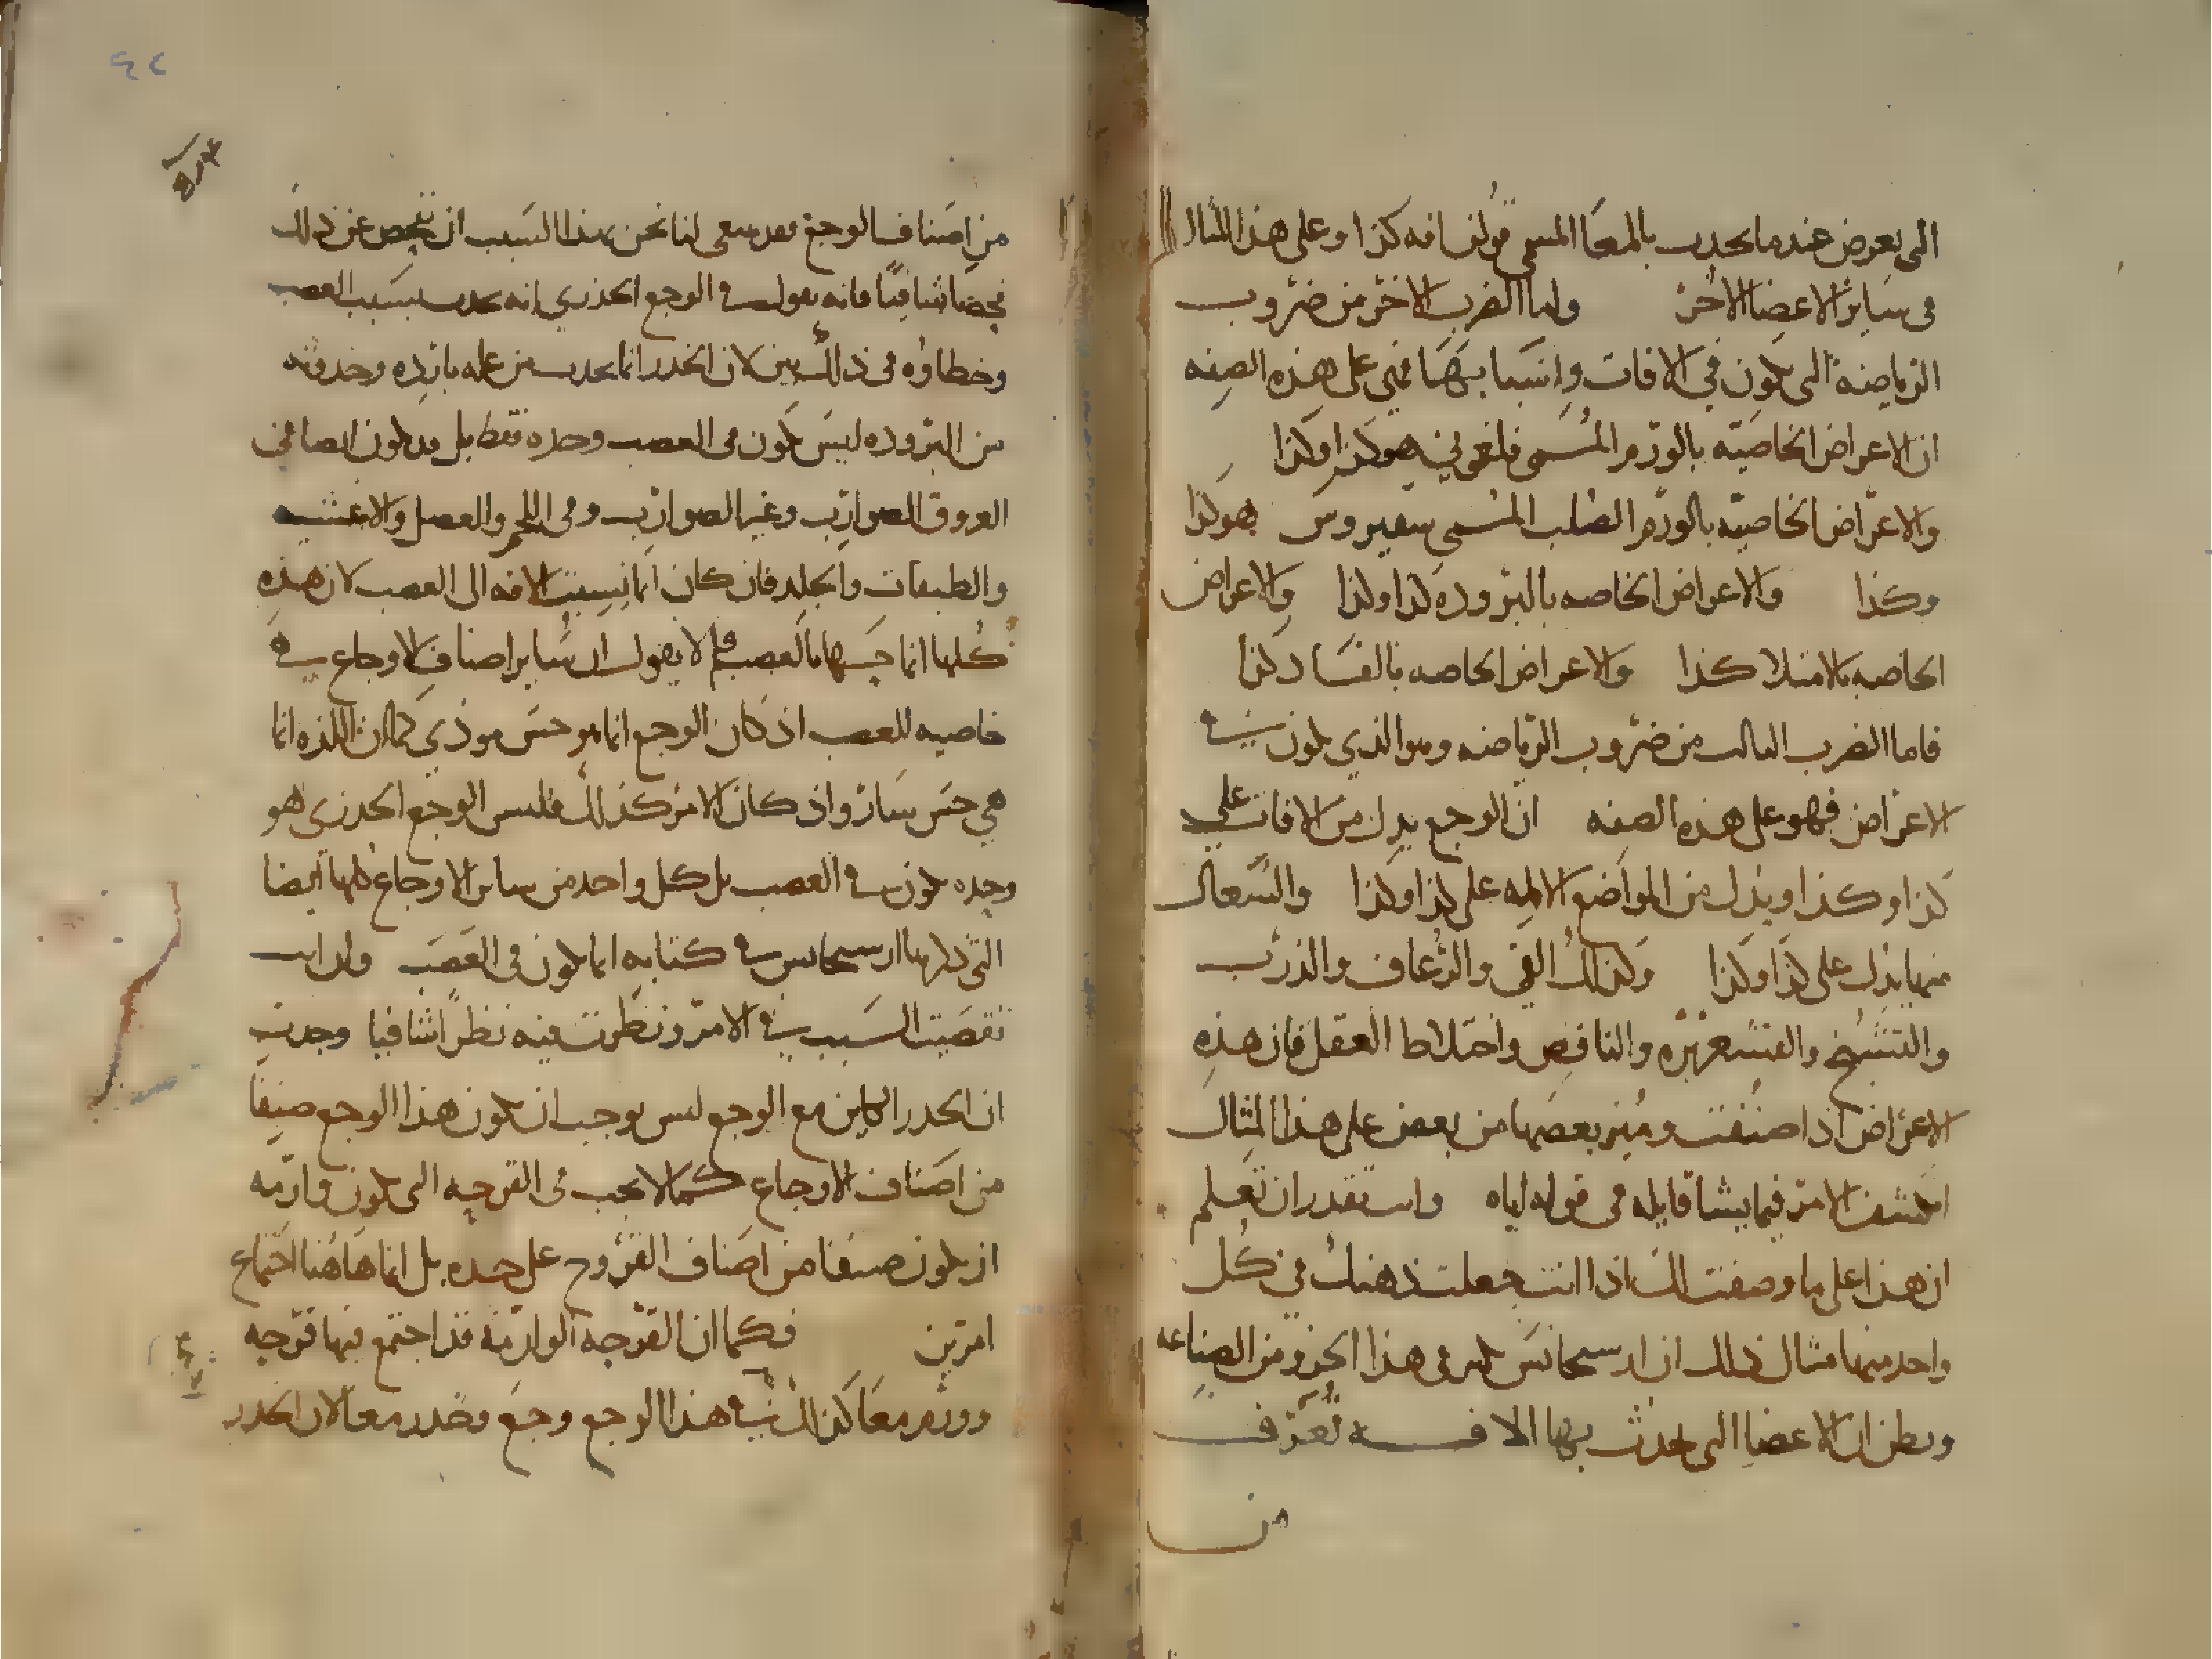 التى تعرض عندما تحدث بالمعا المسمى قولن افه كذا وعلى هذا المثال
فى ساير الاعضا الاخر واما الضرب الاخر من ضروب
الرياضة التى تكون في الافات واسبابها فهي على هذه الصفه
ان الاعراض الخاصيه بالورم المسمى فلغموني هو كذا وكذا
والاعراض الخاصيه بالورم الصلب المسمى سقيروس هو كذا
وكذا والاعراض الخاصه بالبروده كذا وكذا والاعراض
الخاصه بالامتلا كذا والاعراض الخاصه بالفساد كذا
فاما الضرب الثالث من ضروب الرياضه وهو الذي يكون في
الاعراض فهو على هذه الصفه ان الوجع يدل من الافات على
كذا وكذا ويدل من المواضع الالمه على كذا وكذا والسعال
منها يدل على كذا وكذا وكذلك القي والرعاف والذرب
والتشنج والقشعريره والنافض واختلاط العقل فان هذه
الاعراض اذا صنفت وميز بعضها من بعض على هذا المثال
انكشف الامر فيما يشا قايله فى قوله اياه وانت تقدر ان تعلم
ان هذا على ما وصفت لك اذا انت جعلت ذهنك في كل
واحد منها مثال ذلك ان ارسيجانس فى هذا الجزو من الصناعه
ويظن ان الاعضا التى تحدث بها الافه تعرف
من
من اصناف الوجع فقد ينبغى لنا نحن بهذا السبب ان نفحص عن ذلك
فحصا شافيا فانه يقول في الوجع الخدري انه يحدث بسبب العصب
وخطاوه فى ذلك بين لان الخدر انما يحدث من عله بارده وحدوثه
من البروده ليس يكون فى العصب وحده فقط بل قد يكون ايضا في
العروق الضوارب وغير الضوارب وفى اللحم والعضل والاغشيه
والطبقات والجلد فان كان انما نسبت الافه الى العصب لان هذه
كلها انما حسها بالعصب فلم لا يقول ان ساير اصناف الاوجاع في
خاصيه للعصب اذ كان الوجع انما هو حس موذي كما ان اللذه انما
هي حس سار واذ كان الامر كذلك فليس الوجع الخدري هو
وحده يكون في العصب بل كل واحد من ساير الاوجاع كلها ايضا
التى ذكرها ارسيجانس في كتابه انما يكون فى العصب وان انت
تقصيت السبب في الامر ونظرت فيه نظرا شافيا وجدت
ان الخدر الكاين مع الوجع ليس يوجب ان يكون هذا الوجع صنفا
من اصناف الاوجاع كما لا يجب فى القرحه التى تكون وارمه
ان يكون صنفا من اصناف القروح على حده بل انما هاهنا اجتماع
امرين فكما ان القرحه الوارمه قد اجتمع فيها قرحه
وورم معا كذلك في هذا الوجع وجع وخدر معا لان الخدر